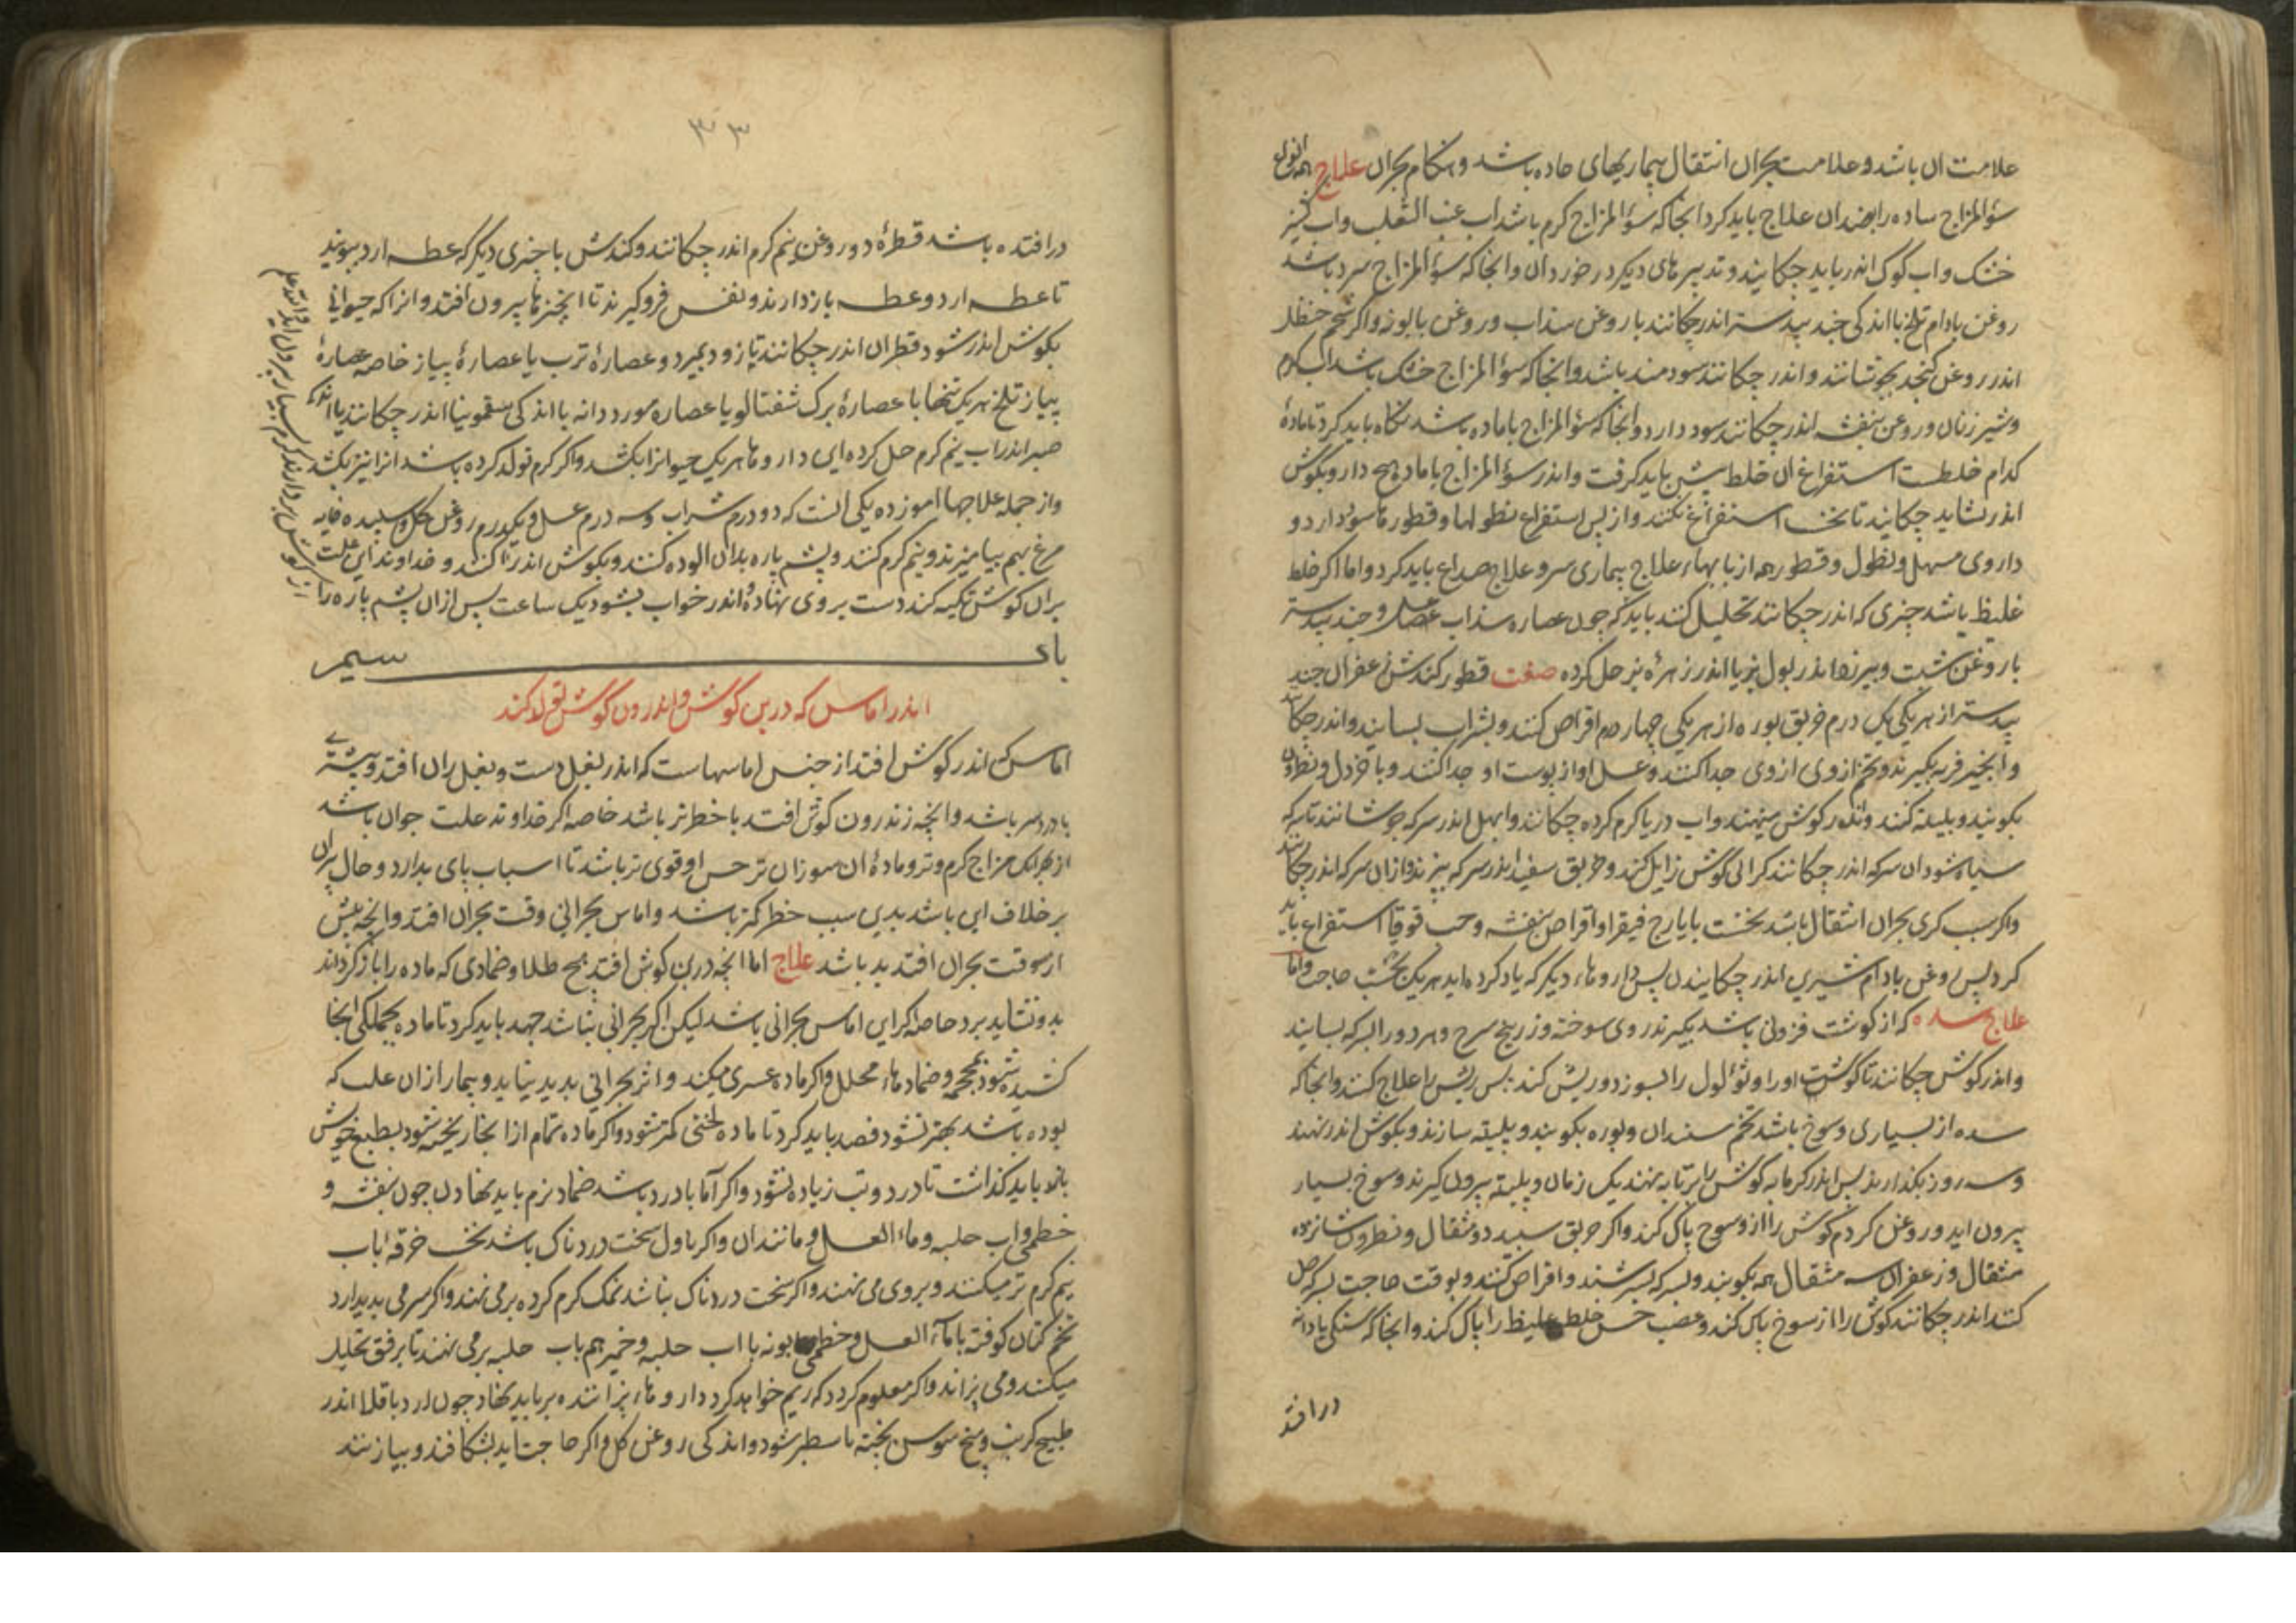 علامت ان باشد و علامت بحران انتقال بیماریهای حاده باشد و هنکام بحران علاج همه انواع
سوٴالمزاج ساده را بضد ان علاج باید کرد انجا که سوٴالمزاج کرم باشد اب عنب الثعلب و اب کشنیز
خشک و اب کوک اندر باید چکانید و تدبیرهای دیکر در خور دان و انجا که سوٴالمزاج سرد باشد
روغن بادام تلخ با اندکی جند بیدستر اندر چکانند یا روغن سذاب و روغن بابونه و اکر شحم حنظل
اندر روغن کنجد بجوشانند و اندر چکانند سودمند باشد و انجا که سوٴالمزاج خشک باشد اب کرم
و شیر زنان و روغن بنفشه اندر چکانند سود دارد و انجا که سوٴالمزاج با ماده باشد نکاه باید کرد تا مادهٔ
کدام خلطست استفراغ ان خلط پیش باید کرفت و اندر سوٴالمزاج با ماده هیچ دارو بکوش
اندر نشاید چکانید تا نخست استفراغ نکنند و از پس استفراغ نطولها و قطورها سود دارد و
داروی مسهل و نطول و قطور همه از بابهاء علاج بیماری سر و علاج صداع باید کرد و اما اکر خلط
غلیظ باشد چیزی که اندر چکانند تحلیل کند باید که چون عصاره سذاب عسل و جند بیدستر
با روغن شبت و بیرزد اندر بول بز یا اندر زهرهٔ بز حل کرده صفت قطور کندش زعفران جند
بیدستر از هر یکی یک درم خربق بوره از هر یکی چهار درم اقراص کنند و بشراب بسایند و اندر چکانند
و انجیر فربه بکیرند و تخم از وی جدا کنند و عسل او از پوست او جدا کنند و با خردل و نطرون
بکوبند و بلیته کنند و اندر کوش مینهند و اب دریا کرم کرده چکانند و ابهل اندر سرکه جوشانند تا سرکه
سیاه شود ان سرکه اندر چکانند کرانی کوش زایل کند و خربق سفید اندر سرکه بپزند و ازان سرکه اندر چکانند
و اکر سبب کری بحران انتقال باشد نخست بایارج فیقرا و اقراص بنفشه و حب قوقایا استفراغ باید
کرد پس روغن بادام شیرین اندر چکانیدن پس داروهاء دیکر که یاد کرده اید هر یک بحسب حاجت و اما
علاج سده که از کوشت فزونی باشد بکیرند روی سوخته و زرنیخ سرخ و هر دو را بسرکه بسایند
و اندر کوش چکانند تا کوشت او را و ثوٴلول را بسوزد و ریش کند پس ریش را علاج کنند و انجا که
سده از بسیاری وسخ باشد تخم سندان و بوره بکوبند و بلیته سازند و بکوش اندر نهند
و سه روز بکذارند پس اندر کرمابه کوش را بر تابه نهند یک زمان و پلیته بیرون کیرند وسخ بسیار
بیرون اید و روغن کرم کوش را از وسخ پاک کند و اکر خربق سبید دو مثقال و نطرون شانزده
مثقال و زعفران سه مثقال همه بکوبند و بسرکه بسرشند و اقراص کنند و بوقت حاجت بسرکه حل
کنند اندر چکانند کوش را از وسخ پاک کند و عصب حس خلط غلیظ را پاک کند و انجا که سنکی یا دانه
در افتد
۳۳
در افتده باشد قطرهٔ دو روغن نیم کرم اندر چکانند و کندش با چیزی دیکر که عطسه ارد ببویند
تا عطسه ارد و عطسه بازدارند و نفس فرو کیرند تا انچیزها بیرون افتد و انرا که حیوانی
بکوش اندر شود قطران اندر چکانند تا زود بمیرد و عصارهٔ ترب یا عصارهٔ پیاز خاصه عصارهٔ
پیاز تلخ هر یک تنها با عصارهٔ برک شفتالو یا عصاره مورد دانه با اندکی سقمونیا اندر چکانند یا اندکی
صبر اندر اب نیم کرم حل کرده این داروها هر یک حیوانرا بکشد و اکر کرم تولد کرده باشد انرا نیز بکشد
و از جمله علاجها اموزده یکی انست که دو درم شراب و سه درم عسل و یکدرم روغن کل و سپیده خایه
مرغ بهم بیامیزند و نیم کرم کنند و پشم پاره بدان الوده کنند و بکوش اندر اکنند و خداوند این علت
بران کوش تکیه کند دست بروی نهاده اندر خواب بشود یک ساعت پس ازان پشم پاره را
از کوش بردارند کرم بسیار بیرون اید و الله اعلم
باب سیم
اندر اماس که در بن کوش و اندرون کوش تولد کند
اماس که اندر کوش افتد از جنس اماسهاست که اندر بغل دست و بغل ران افتد و بیشتری
با درد سر باشد و انچه اندرون کوش افتد با خطرتر باشد خاصه اکر خداوند علت جوان باشد
از بهر انک مزاج کرم و تر و مادهٔ ان سوزان تر حس او قوی تر باشد تا اسباب پای بدارد و حال پیران
بر خلاف این باشد بدین سبب خطر کمتر باشد و اماس بحرانی وقت بحران افتد و انچه پیش
از وقت بحران افتد بد باشد علاج اما انچه در بن کوش افتد هیچ طلا و ضمادی که ماده را باز کرداند
بدو نشاید برد خاصه اکر این اماس بحرانی باشد لیکن اکر بحرانی نباشد جهد باید کرد تا ماده بجملکی انجا
کشیده شود بمحجمه و ضمادهاء محلل و اکر ماده عسری میکند و اثر بحرانی بدید نیاید و بیمار ازان علت که
بوده باشد بهتر نشود فصد باید کرد تا ماده لختی کمتر شود و اکر ماده تمام از انجا ریخته شود بطبع خویش
باید کذاشت تا درد و تب زیاده نشود و اکر آماس با درد باشد ضماد نرم باید نهادن چون بنفشه و
خطمی و اب حلبه و ماء العسل و مانند ان و اکر باول سخت دردناک باشد نخست خرقه باب
نیم کرم تر میکنند و بروی می نهند و اکر سخت دردناک نباشد نمک کرم کرده بر می نهند و اکر سرمی بدید ارد
تخم کتان کوفته با ماء العسل و خطمی بابونه با اب حلبه و خمیر هم باب حلبه بر می نهند تا برفق تحلیل
میکند و می پزاند و اکر معلوم کردد که ریم خواهد کرد داروهاء پزاننده بر باید نهاد چون ارد باقلا اندر
طبیخ کرنب و بیخ سوسن پخته تا سطبر شود و اندکی روغن کل و اکر حاجت اید بشکافند و بیازنند